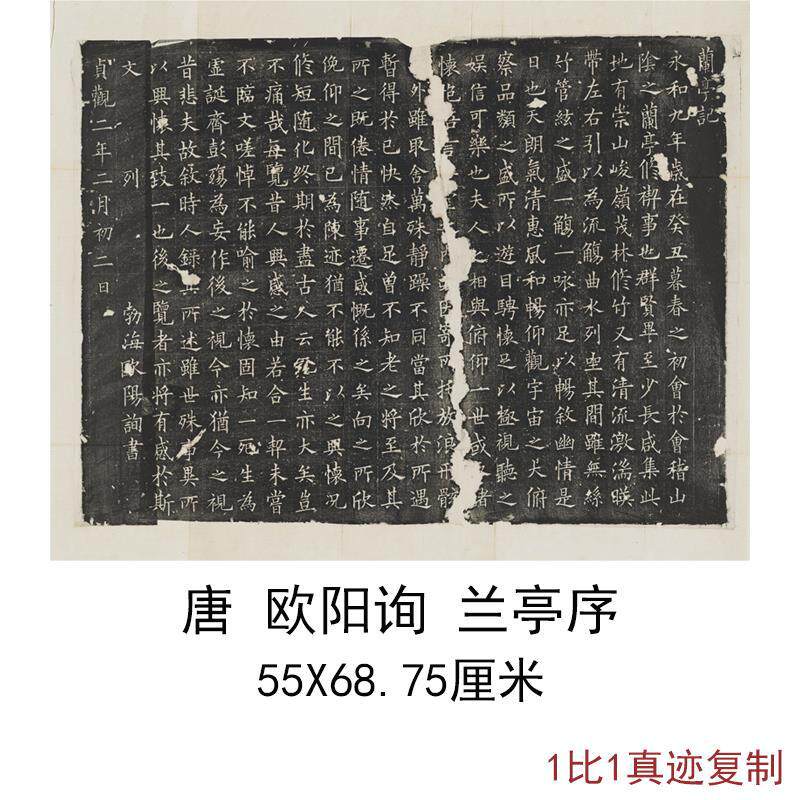 蘭亭記
永和九年歲在癸丑暮春之初會於會稽山
陰之蘭亭脩禊事也群賢畢至少長咸集此
地有崇山峻嶺茂林脩竹又有清流激湍暎
帶左右引以為流觴曲水列坐其間雖無絲
竹管絃之盛一觴一咏亦足以暢敘幽情是
日也天朗氣清惠風和暢仰觀宇宙之大俯
察品類之盛所以遊目騁懷足以極視聽之
娛信可樂也夫人之相與俯仰一世或諸
懷寄所托放浪形骸
外雖取舍萬殊靜躁不同當其欣於所遇
暫得於己快然自足曾不知老之將至及其
所之既倦情隨事遷感慨係之矣向之所欣
俛仰之間已為陳迹猶不能不以之興懷况
脩短隨化終期於盡古人云死生亦大矣豈
不痛哉每覽昔人興感之由若合一契未嘗
不臨文嗟悼不能喻之於懷固知一死生為
虛誕齊彭殤為妄作後之視今亦猶今之視
昔悲夫故敘時人錄其所述雖世殊事異所
以興懷其致一也後之覽者亦將有感於斯
文 列 勃海歐陽詢書
貞觀二年二月初二日
唐 欧阳询 兰亭序
55X68.75厘米
1比1真迹复制